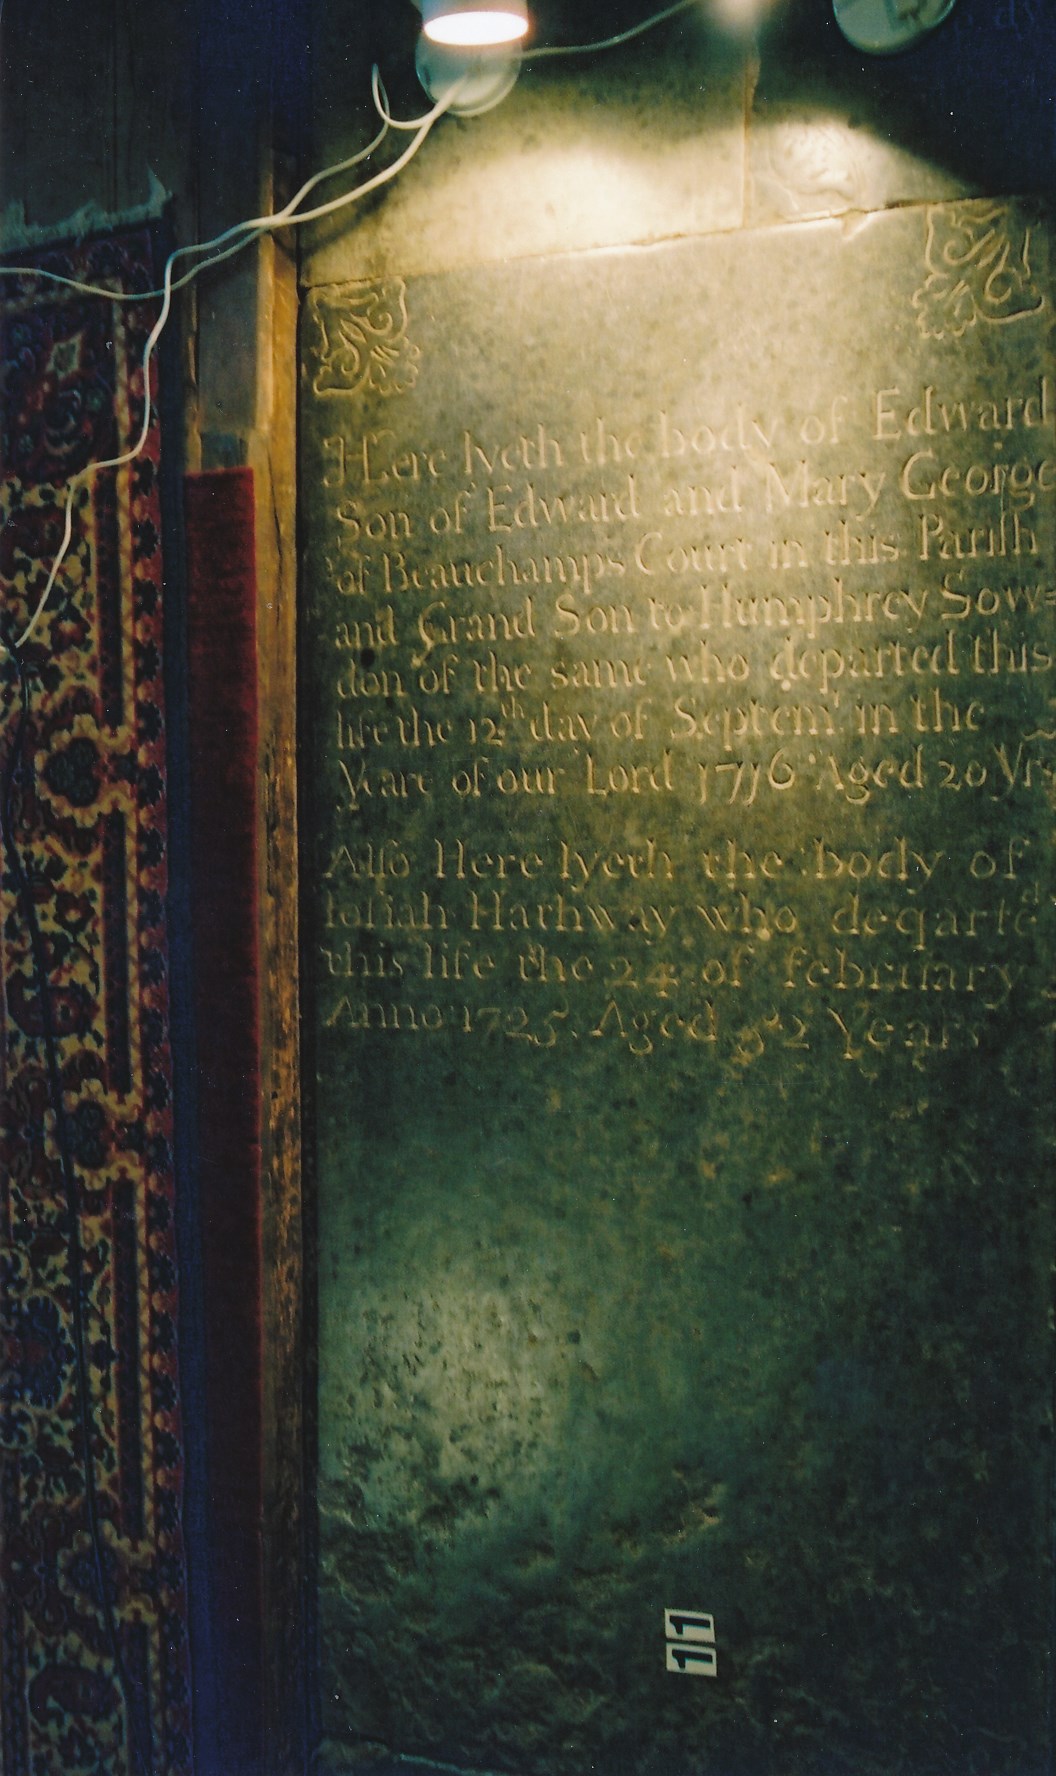 Here lyeth the body of Edward
Son of Edward and Mary George
of Beauchamps Court in this Parish
and Grand Son to Humphrey Sow=
don of the same who departed this
life the 12th day of Septemr in the
Yeare of our Lord 1716 Aged 20 Yrs
Also Here lyeth the body of
Iosiah Hathway who deqarted
this life the 24 of february
Anno 1725. Aged 52 Years
11